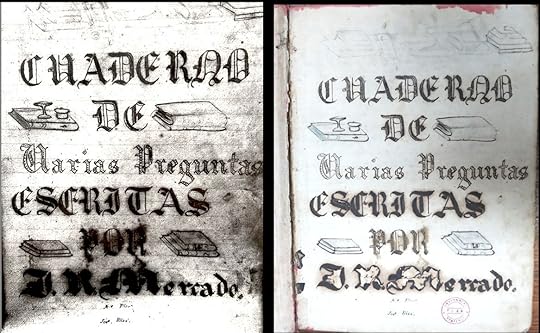 CUADERNO
DE
Varias Preguntas
ESCRITAS
POR
J. R. Mercado.
CUADERNO
DE
Varias Preguntas
ESCRITAS
POR
J. R. Mercado.